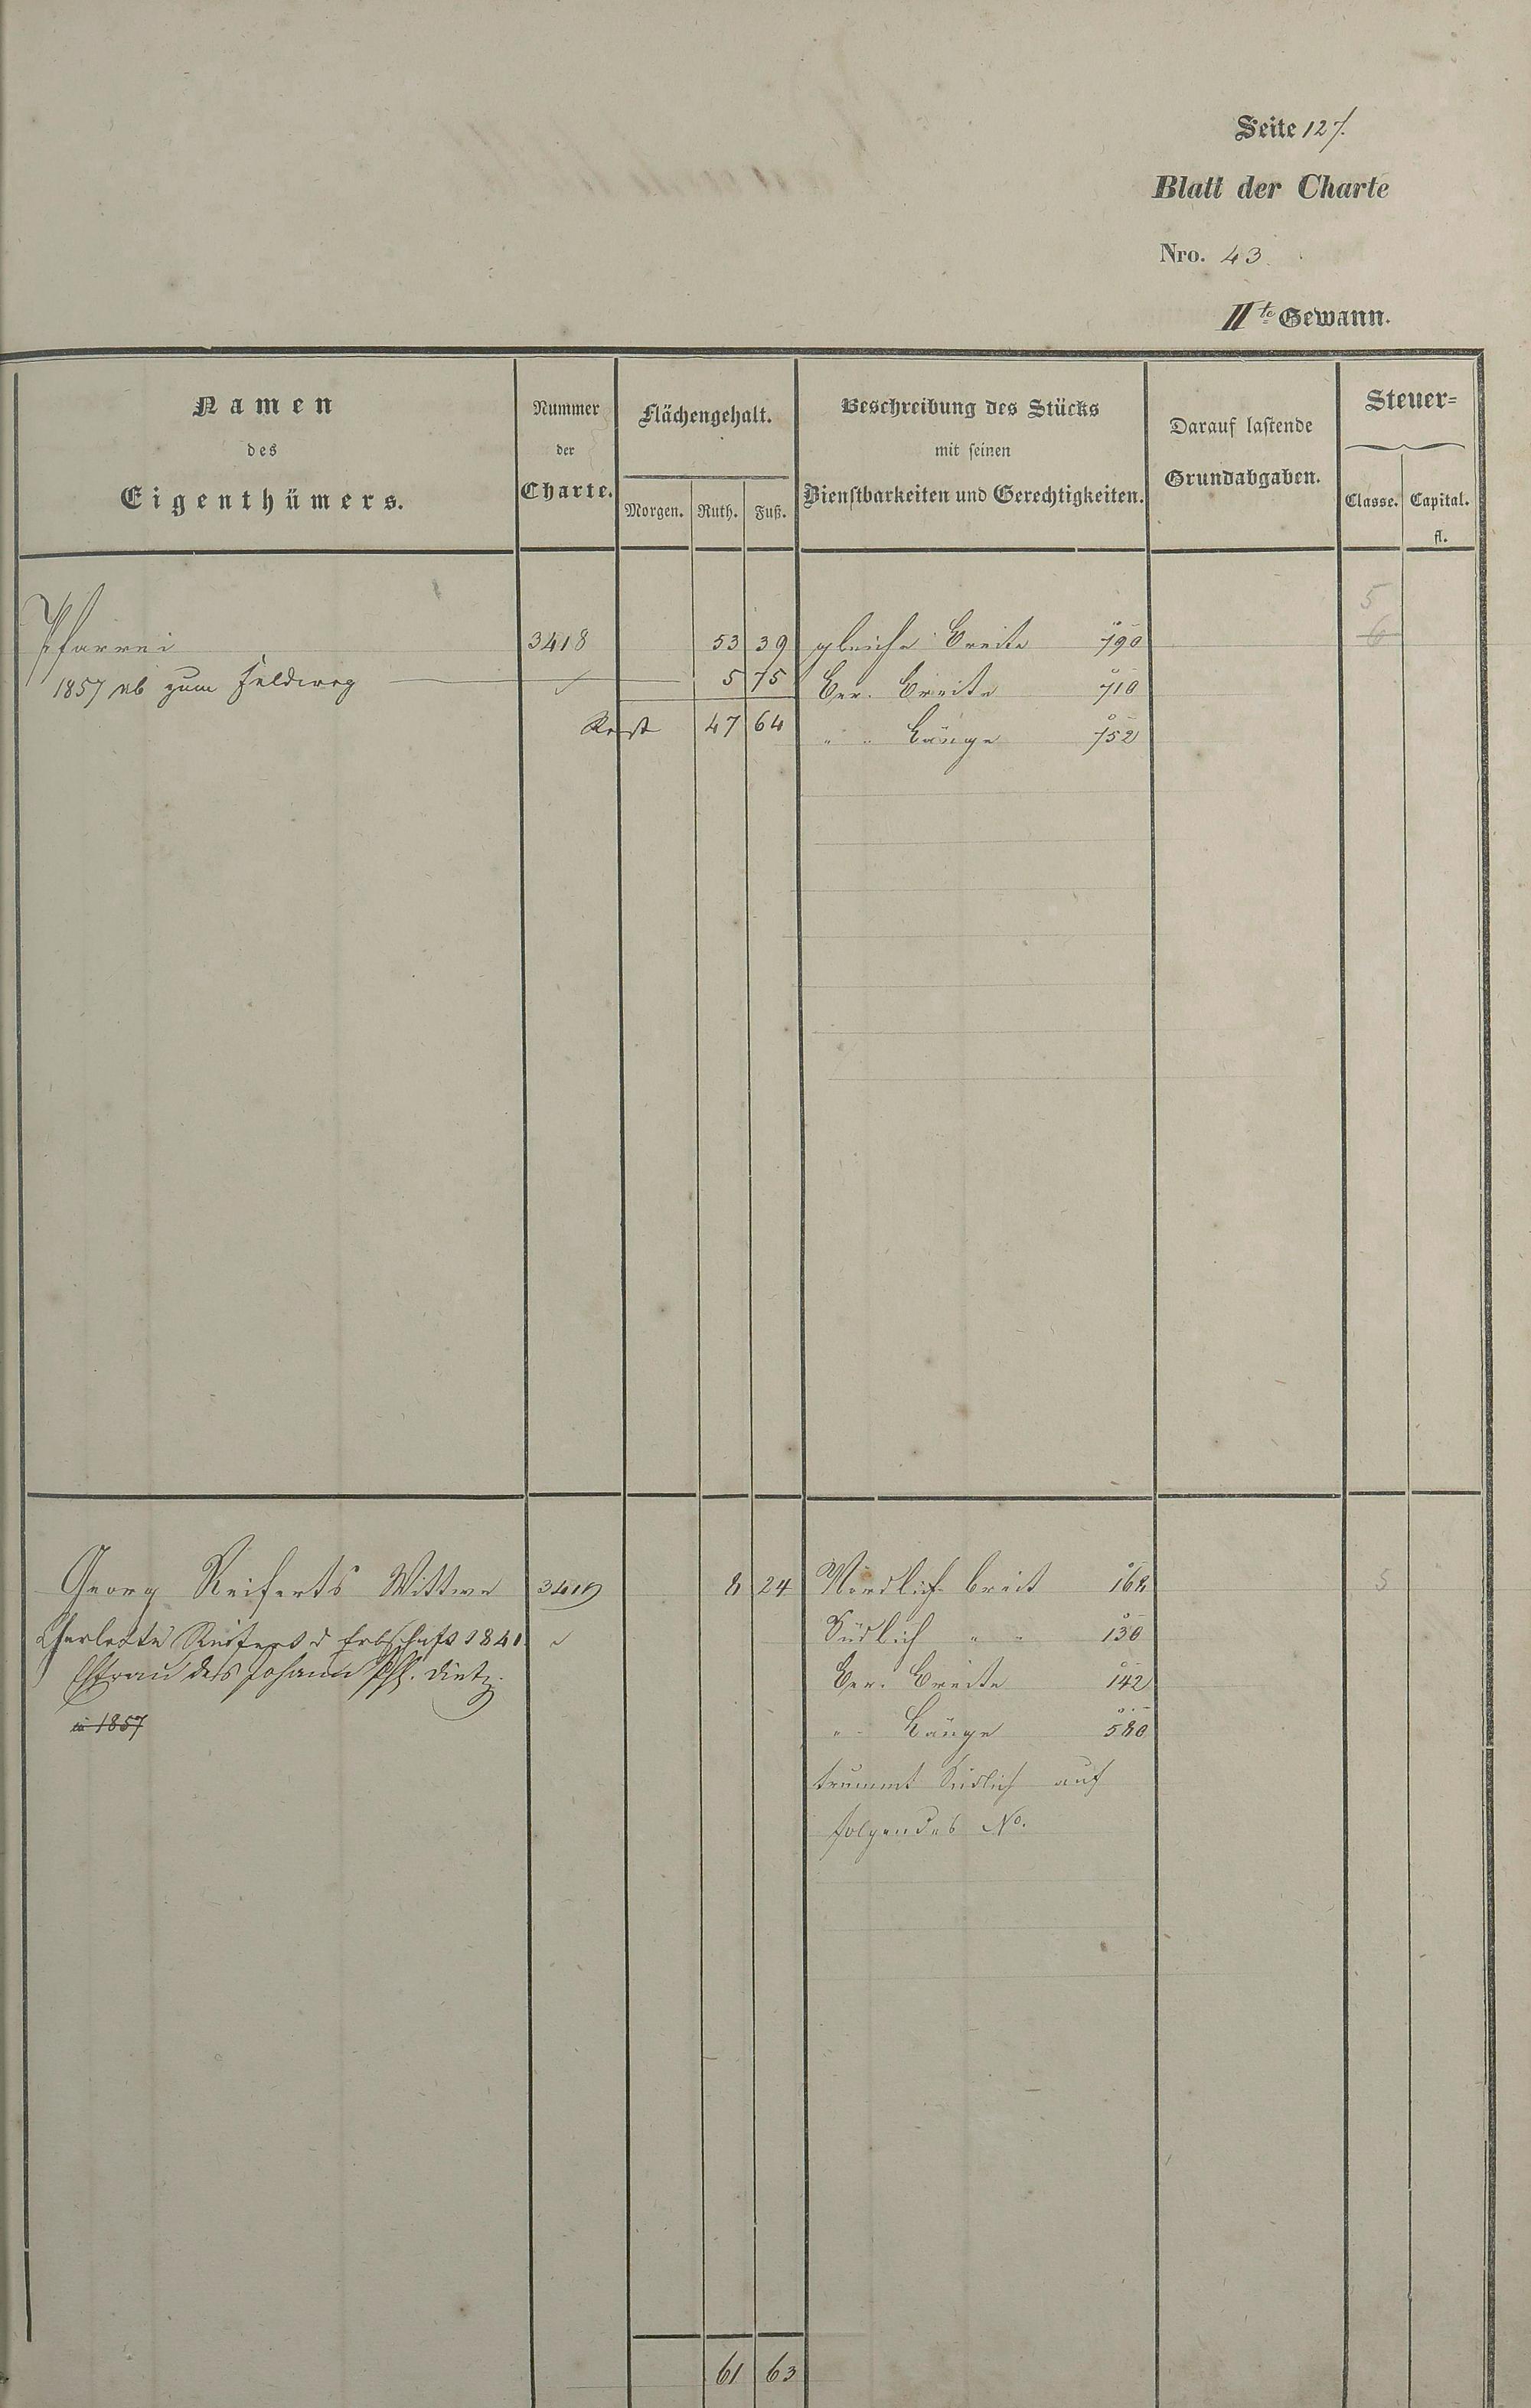 Seite 127.
Blatt der Charte
Nro. 43.
IIte Gewann.
Namen
des
Eigenthümers.
Nummer
der
Charte.
Flächengehalt.
Morgen. Ruth. Fuß.
Beschreibung des Stücks
mit seinen
Dienstbarkeiten und Gerechtigkeiten.
Darauf lastende
Grundabgaben.
Steuer-
Classe. Capital.
fl.
5
Pfarrei 3418 53 39 gleiche Breite 790 6
1857 ab zum Feldweg 5 75 Ber. Breite 710
Rest 47 64 " " Länge 752
Georg Reiferts Wittwe 3419 8 24 Nördlich breit 162 5
Charlotte Reifert d Erbschaft 1841 Südlich " " 130
Ehfrau des Johann Phl. Dietz. Ber. Breite 142
in 1857 " " Länge 580
trummt Südlich auf
folgendes No.
61 63